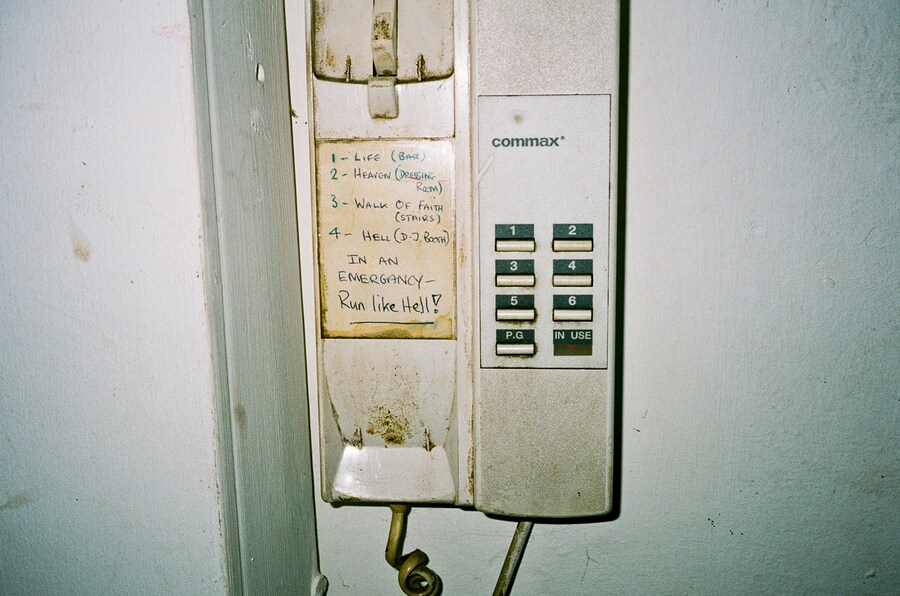 1 - LIFE (BAR)
2 - HEAVEN (DRESSING
ROOM)
3 - WALK OF FAITH
(STAIRS)
4 - HELL (D.J. BOOTH)
IN AN
EMERGANCY -
Run like Hell!
commax
1 2
3 4
5 6
P.G IN USE